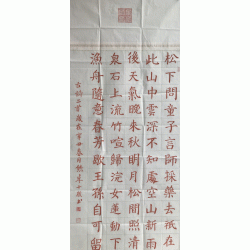 松下問童子言師採藥去祇在
此山中雲深不知處空山新雨
後天氣晚來秋明月松間照清
泉石上流竹喧歸浣女蓮動下
漁舟隨意春芳歇王孫自可留
古詩二首